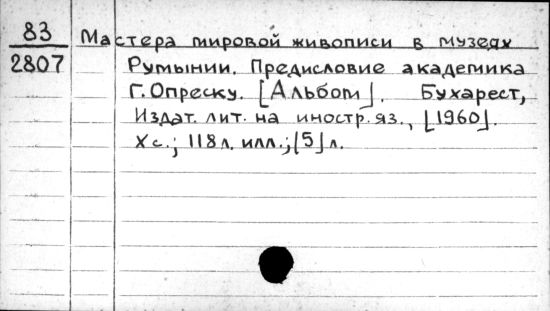 83 Мастера мировой живописи в музеях
2807 Румынии. Предисловие академика
Г. Опреску. [Альбом]. Бухарест,
Издат. лит. на иностр. яз., [1960].
Xс.; 118 л. илл.; [5] л.